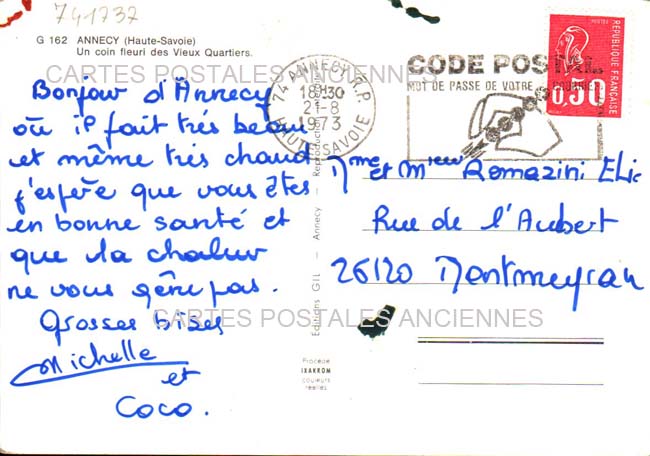 741737
G 162 ANNECY (Haute-Savoie)
Un coin fleuri des Vieux Quartiers.
CARTES POSTALES ANCIENNES
Bonjour d'Annecy
où il fait très beau
et même très chaud
j'espère que vous êtes
en bonne santé et
que la chaleur
ne vous gêne pas.
Grosses bises
Michelle
et
Coco.
CARTES POSTALES ANCIENNES
Editions GIL - Annecy - Reproduction
Procédé
IRAKROM
couleurs
réelles
74 ANNECY R.P.
18H30
21-8
1973
HAUTE-SAVOIE
CODE POSTAL
MOT DE PASSE DE VOTRE COURRIER
REPUBLIQUE FRANÇAISE
POSTES
0,50
Mme et Mieur Romazini Elie
Rue de l'Aubert
26120 Montmeyran